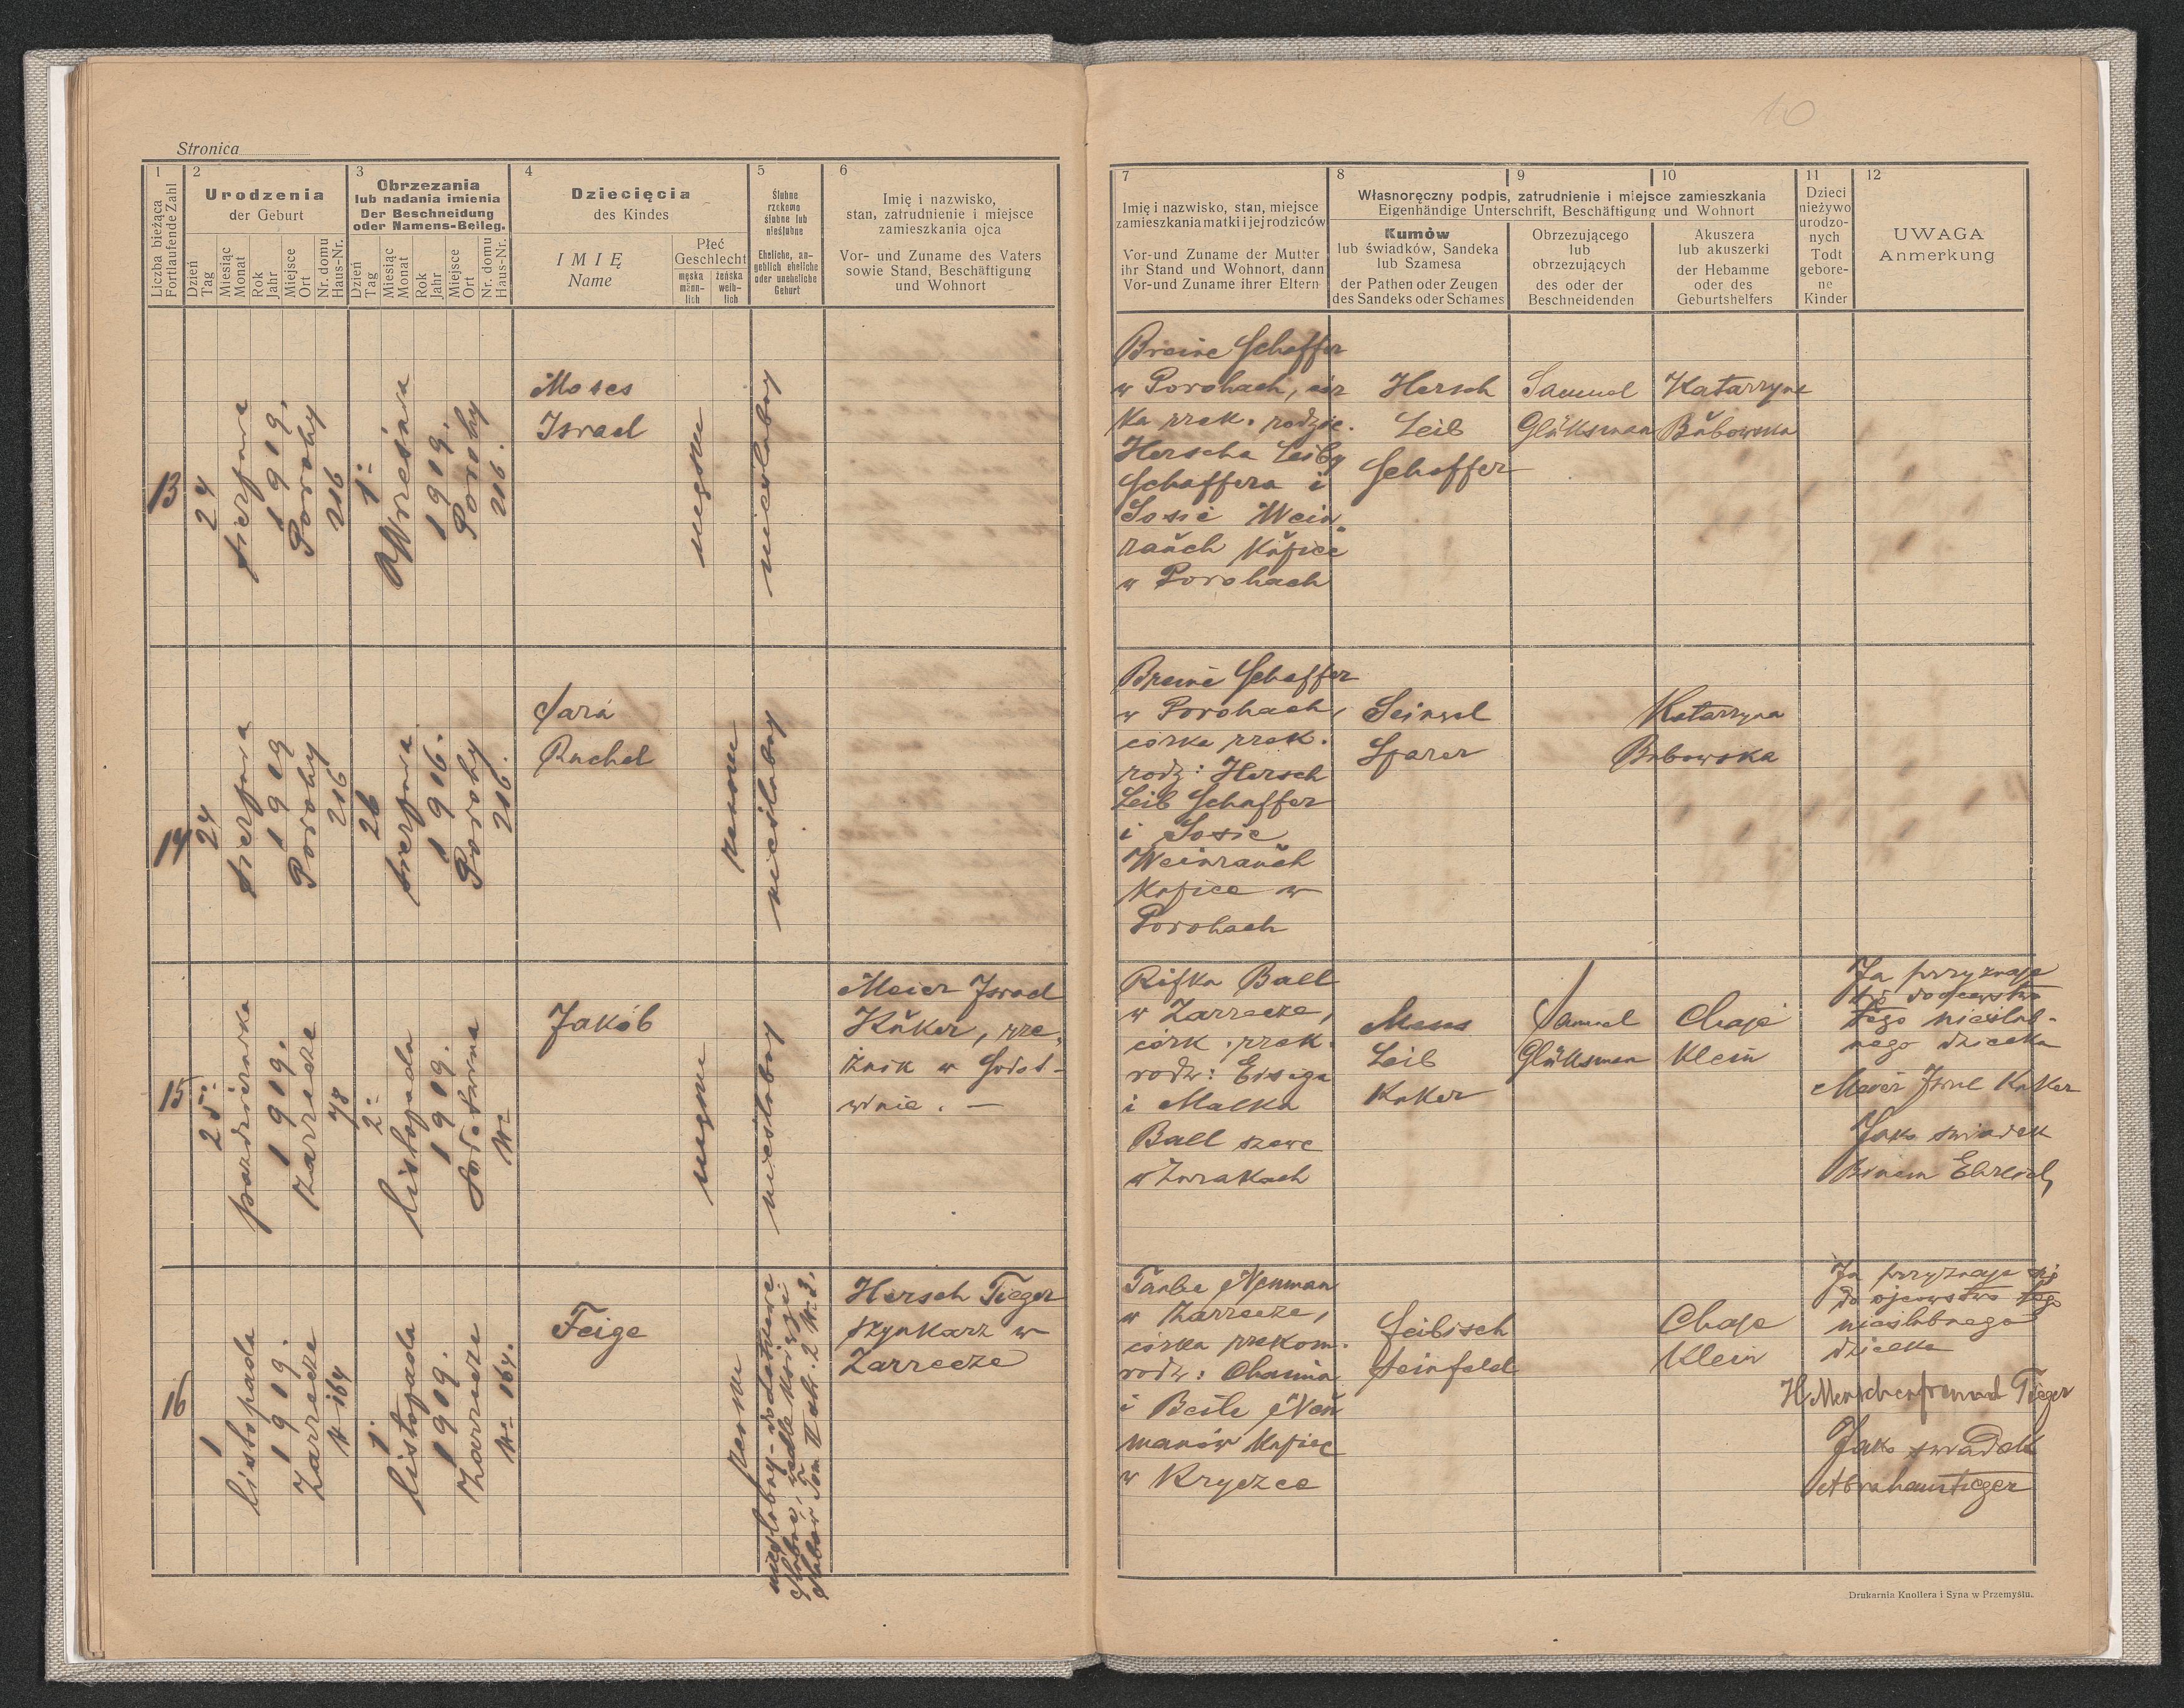 Stronica
10
1
Liczba bieżąca
Fortlaufende Zahl
2
Urodzenia
der Geburt
Dzień
Tag
Miesiąc
Monat
Rok
Jahr
Miejsce
Ort
Nr. domu
Haus-Nr.
3
Obrzezania
lub nadania imienia
Der Beschneidung
oder Namens-Beileg.
Dzień
Tag
Miesiąc
Monat
Rok
Jahr
Miejsce
Ort
Nr. domu
Haus-Nr.
4
Dziecięcia
des Kindes
IMIĘ
Name
Płeć
Geschlecht
męska
männ-
lich
żeńska
weib-
lich
5
Ślubne
rzekomo
ślubne lub
nieślubne
Eheliche, an-
geblich eheliche
oder uneheliche
Geburt
6
Imię i nazwisko,
stan, zatrudnienie i miejsce
zamieszkania ojca
Vor- und Zuname des Vaters
sowie Stand, Beschäftigung
und Wohnort
7
Imię i nazwisko, stan, miejsce
zamieszkania matki i jej rodziców
Vor-und Zuname der Mutter
ihr Stand und Wohnort, dann
Vor-und Zuname ihrer Eltern
8
9
10
Własnoręczny podpis, zatrudnienie i miejsce zamieszkania
Eigenhändige Unterschrift, Beschäftigung und Wohnort
Kumów
lub świadków, Sandeka
lub Szamesa
der Pathen oder Zeugen
des Sandeks oder Schames
Obrzezującego
lub
obrzezujących
des oder der
Beschneidenden
Akuszera
lub akuszerki
der Hebamme
oder des
Geburtshelfers
11
Dzieci
nieżywo
urodzo-
nych
Todt
gebore-
ne
Kinder
12
UWAGA
Anmerkung
13
24
sierpnia
1919.
Porohy
216
1
Września
1919.
Porohy
216.
Moses
Israel
męska
nieślubny
Breine Schaffer
w Porohach, cór
ka rzek. rodzic.
Herscha Leiby
Schaffera i
Sosie Wein-
rauch Kupiec
w Porohach
Hersch
Leib
Schaffer
Samuel
Glüksman
Katarzyna
Bubowska
14
24
sierpnia
1919
Porohy
216
26
sierpnia
1916.
Porohy
216.
Sara
Rachel
nieślubny
Breine Schaffer
w Porohach,
córka rzek.
rodz: Hersch
Leib Schaffer
i Sosie
Weinrauch
Kupiec w
Porohach
Seinwel
Sparer
Katarzyna
Bubowska
15
25
października
1919.
Zarzecze
78
2
listopada
1919.
Nr
Jakób
męska
nieślubny
Meier Israel
Kuker, rze-
źnik w Sołot-
winie. —
Rifka Ball
w Zarzecze,
córk. rzek.
rodz: Eisiga
i Malka
Ball szewc
w Żurakach
Moses
Leib
Kuker
Samuel
Glüksman
Chaje
Klein
Ja przyznaję
się do ojcowstwa
tego nieślub-
nego dziecka
Meier Israel Kuker
Jako świadek
16
1
listopada
1919.
Zarzecze
Nr 164
1.
listopada
1919.
Zarzecze
Nr 164.
Feige
nieślubny
Hersch Tieger
szynkarz w
Zarzecze
Taube Neuman
w Zarzecze,
córka rzekom.
rodz: Chaima
i Beile Neu
manów Kupiec
w Kryczce
Leibisch
Steinfeld
Chaje
Klein
Ja przyznaję się
do ojcowstwa tego
nieślubnego
dziecka
H. Menschenfreund Tieger
Jako świadek
Abraham Tieger
Drukarnia Knollera i Syna w Przemyślu.